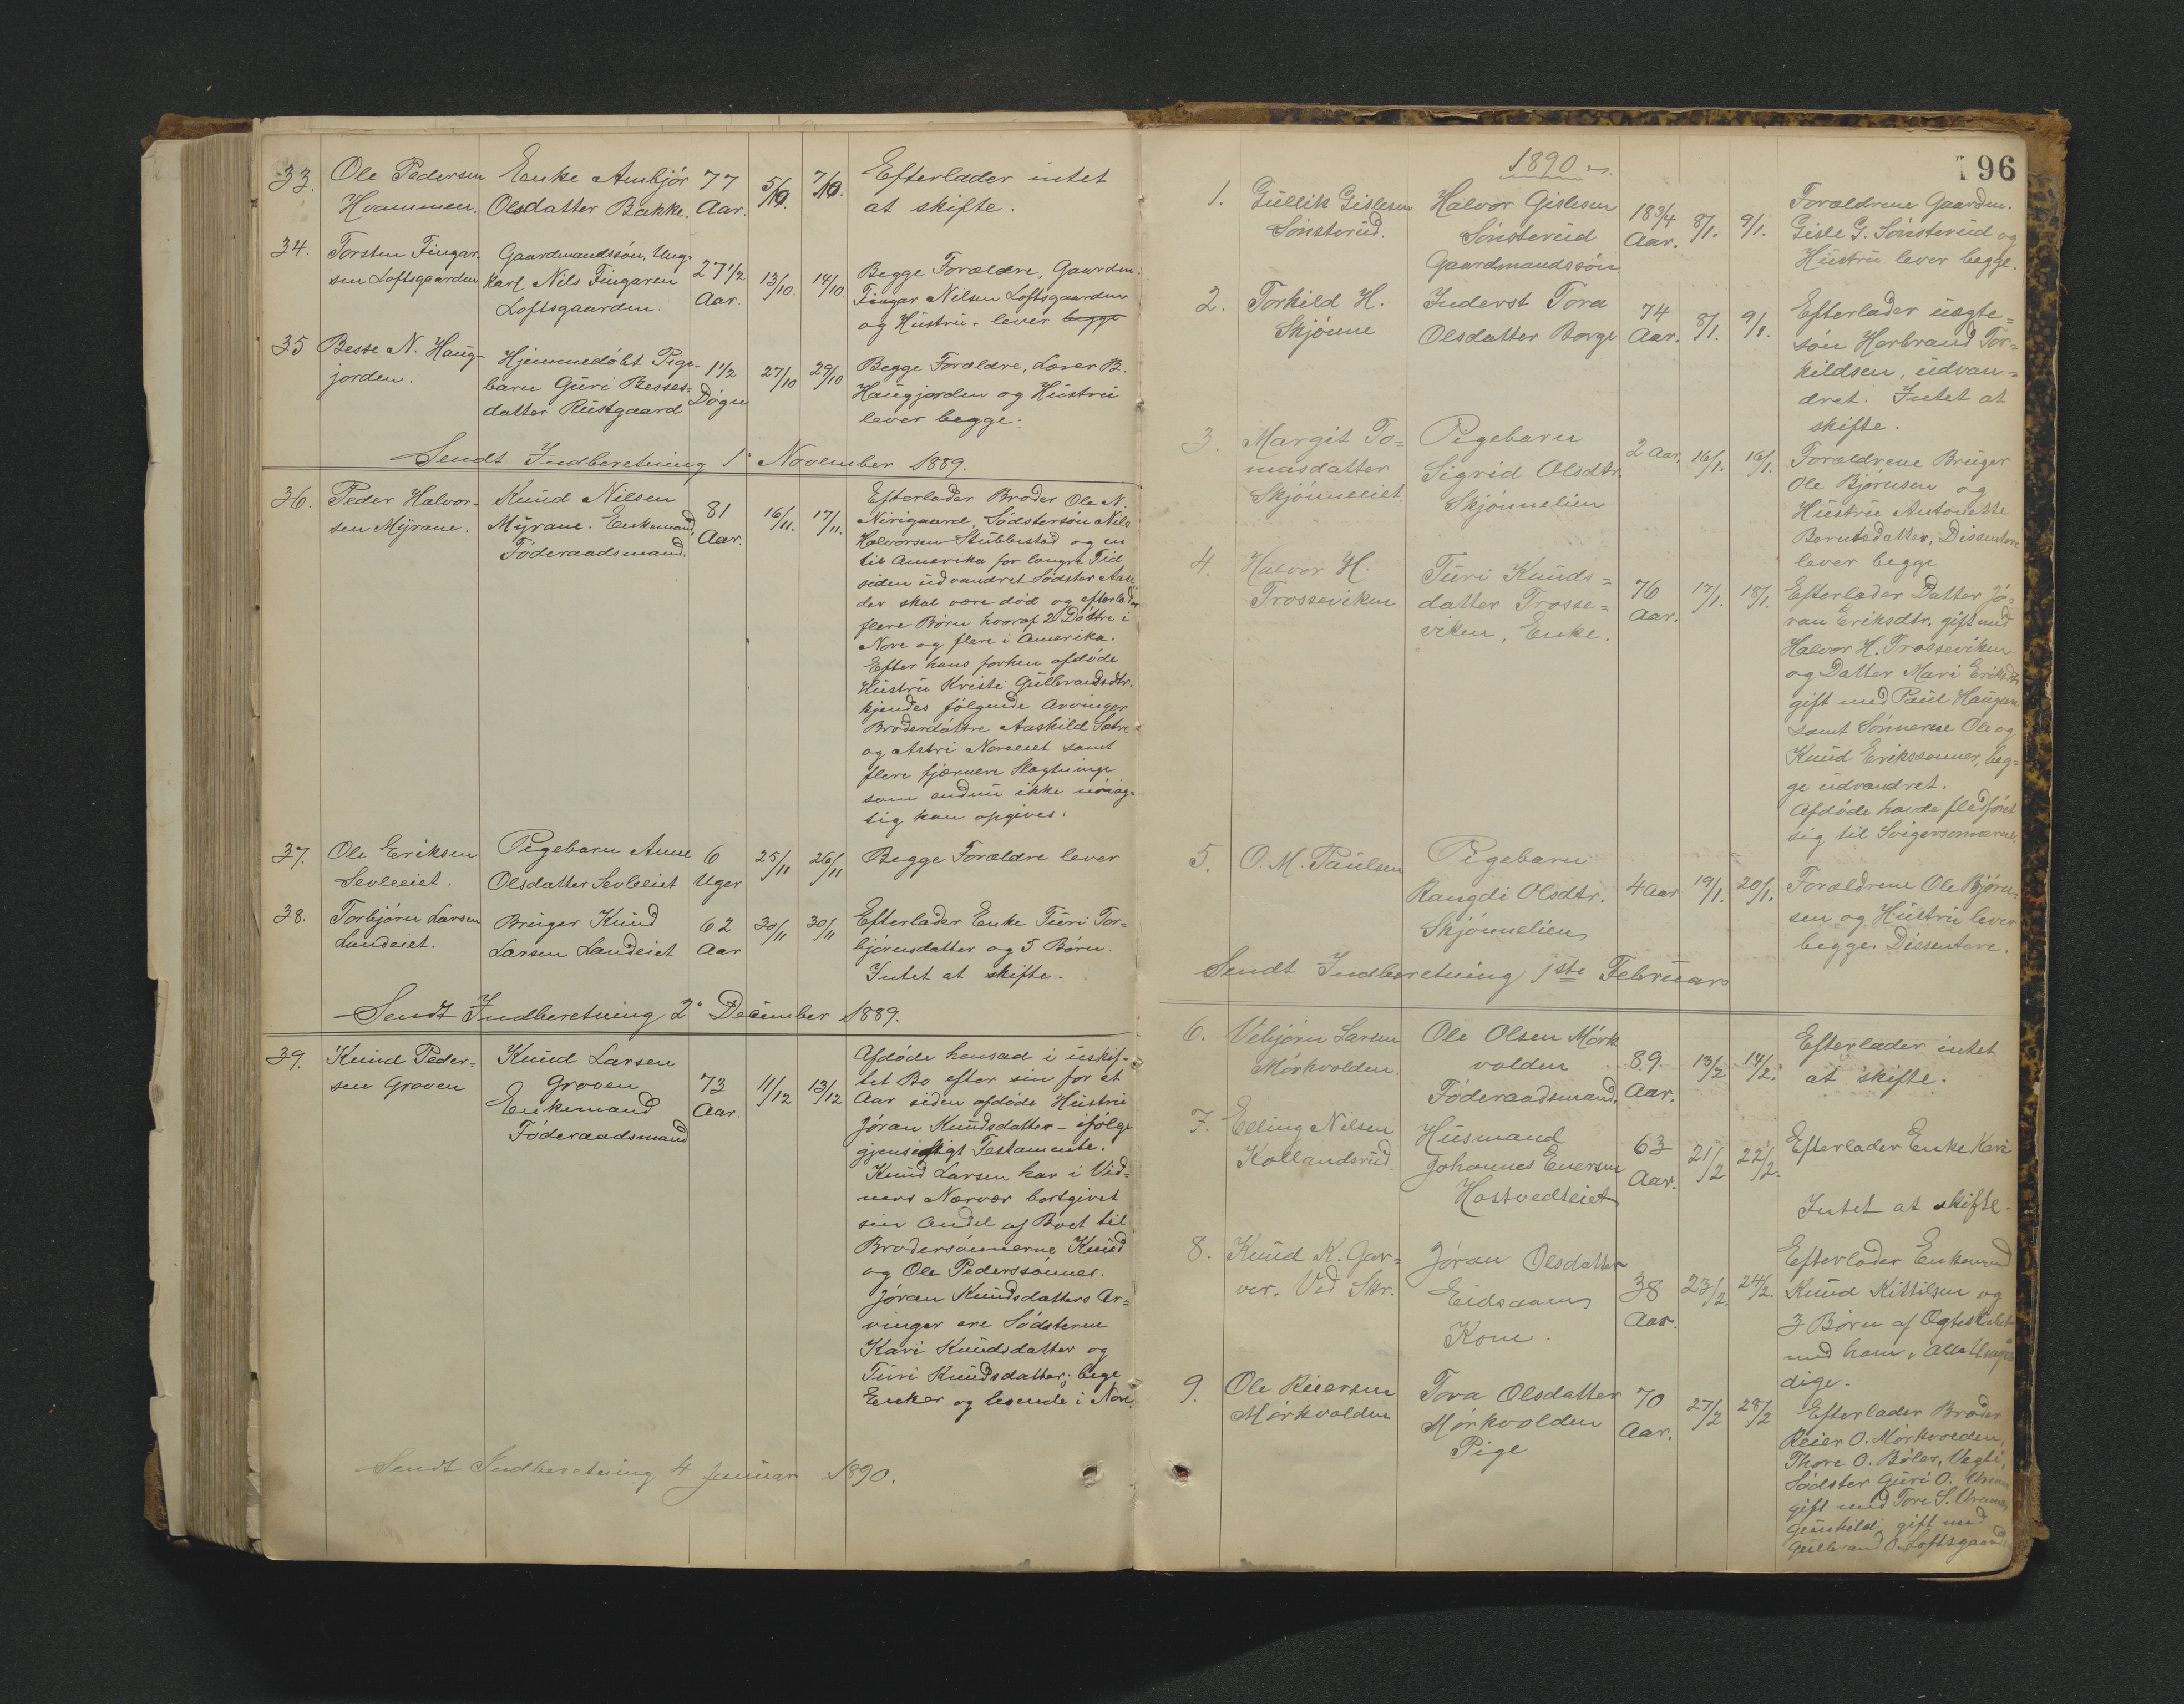 33. Ole Pedersen Hvammen. Enke Ambjör Olsdatter Bakke. 77 Aar. 5/10. 7/10. Efterlader intet
at skifte.
34. Torsten Fingar-
sen Loftsgaarden
Gaardmandssön, Ung-
karl Nils Fingarsen
Loftsgaarden.
27 1/2
Aar.
13/10.
14/10.
Begge Forældre, Gaardm.
Fingar Nilsen Loftsgaarden
og Hustru - lever begge
35 Besse N. Haug-
jorden.
Hjemmedöbt Pige-
barn Guri Besses-
datter Rustgaard
1 1/2
Dögn
27/10
29/10
Begge Forældre, Lærer B.
Haugjorden og Hustru
lever begge.
Sendt Indberetning 1' November 1889.
36. Peder Halvor-
sen Myrane.
Knud Nilsen
Myrane. Enkemand,
Föderaadsmand.
81
Aar.
16/11.
17/11.
Efterlader Broder Ole N.
Nirigaard, Södstersön Nils
Halvorsen Stubberstad og en
til Amerika for længre Tid
siden udvandret Södster
der skal være död og efterlader
flere Börn hvoraf 2 Döttre i
Nore og flere i Amerika.
Efter hans forhen afdöde
Hustru Kristi Gulbrandsdtr.
kjendes fölgende Arvinger
Broderdöttre Aaskild Sætre
og Astri Noreeiet samt
flere fjærnere Slægtninge
som endnu ikke nöiag-
tig kan opgives.
37. Ole Eriksen
Sevleeiet.
Pigebarn Anne
Olsdatter Sevleeiet
6
Uger
25/11
26/11
Begge Forældre lever
38. Torbjörn Larsen
Landeiet.
Bruger Knud
Larsen Landeiet
62
Aar
30/11
30/11
Efterlader Enke Turi Tor-
björnsdatter og 5 Börn.
Intet at skifte.
Sendt Indberetning 2' December 1889.
39. Knud Peder-
sen Groven
Knud Larsen
Groven
Enkemand
Föderaadsmand
73
Aar.
11/12
13/12
Afdöde hensad i uskif-
tet Bo efter sin for et
Aar siden afdöde Hustru
Jöran Knudsdatter - ifölge
gjensidigt Testamente.
Knud Larsen har i Vid-
ners Nærvær bortgivet
sin Andel af Boet til
Brodersönnerne Knud
og Ole Pederssönner.
Jöran Knudsdatters Ar=
vinger ere Södsterne
Kari Knudsdatter og
Turi Knudsdatter; bege
Enker og boende i Nore.
Sendt Indberetning 4 Januar 1890.
196
1890
1. Gullik Gislesen
Sönsterud.
Halvor Gislesen
Sönsterud
Gaardmandssön
18 3/4
Aar.
8/1.
9/1.
Forældrene Gaardm.
Gisle G. Sönsterud og
Hustru lever begge.
2. Torkild H.
Skjönne
Inderst Tora
Olsdatter Borge
74
Aar.
8/1.
9/1.
Efterlader uægte=
sön Herbrand Tor=
kildsen, udvan=
dret. Intet at
skifte.
3. Margit To=
masdatter
Skjönneeiet.
Pigebarn
Sigrid Olsdtr.
Skjönnelien
2 Aar.
16/1.
16/1.
Forældrene Bruger
Ole Björnsen og
Hustru Antonette
Berntsdatter, Dissentere
lever begge
4. Halvor H.
Trosseviken
Turi Knuds=
datter Trosse=
viken, Enke.
76
Aar.
17/1.
18/1.
Efterlader Datter Jö=
ran Eriksdtr. gift med
Halvor H. Trosseviken
og Datter Mari Eriksdtr
gift med Paul Haugen
samt Sönnerne Ole og
Knud Erikssönner, beg=
ge udvandret.
Afdöde havde fledfört
sig til Svigersönnerne
5. O. M. Paulsen
Pigebarn
Rangdi Olsdtr.
Skjönnelien
4 Aar
19/1.
20/1.
Forældrene Ole Björn-
sen og Hustru lever
begge. Dissentere.
Sendt Indberetning 1ste Februar
6. Vebjörn Larsen
Mörkvolden.
Ole Olsen Mörk
volden
Föderaadsmand.
89.
Aar.
13/2
14/2.
Efterlader intet
at skifte.
7. Elling Nilsen
Kollandsrud.
Husmand
Johannes Enersen
Hostvedteiet
63
Aar.
21/2
22/2.
Efterlader Enke Kari
Intet at skifte.
8. Knud K. Gar=
ver. Ved Skr.
Jöran Olsdatter
Eidsaaen
Kone.
38
Aar.
23/2.
24/2.
Efterlader Enkemand
Knud Kittilsen og
3 Börn af Ægteskabet
med ham, alle Umyn
dige.
9. Ole Reiersen
Mörkvolden
Tora Olsdatter
Mörkvolden
Pige
70
Aar.
27/2
28/2
Efterlader Broder
Reier O. Mörkvolden,
Thore O. Böler, Vegli,
Södster Guri O.
gift med Tore S.
Gunhild, gift med
Gulbrand O. Loftsgaarden